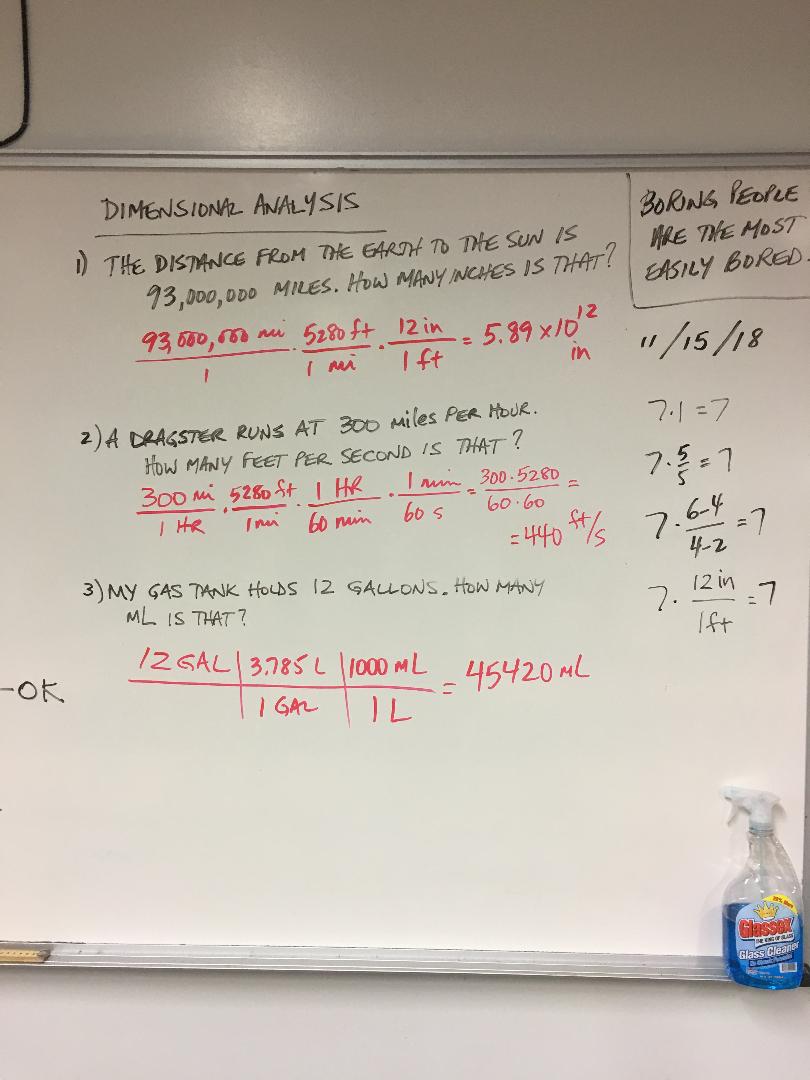 DIMENSIONAL ANALYSIS
1) THE DISTANCE FROM THE EARTH TO THE SUN IS
93,000,000 MILES. HOW MANY INCHES IS THAT?
93,000,000 mi / 1 · 5280 ft / 1 mi · 12 in / 1 ft = 5.89 x 10^12 in
2) A DRAGSTER RUNS AT 300 MILES PER HOUR.
HOW MANY FEET PER SECOND IS THAT?
300 mi / 1 HR · 5280 ft / 1 mi · 1 HR / 60 min · 1 min / 60 s = 300·5280 / 60·60 =
= 440 ft/s
3) MY GAS TANK HOLDS 12 GALLONS. HOW MANY
ML IS THAT?
12 GAL | 3.785 L | 1000 ML = 45420 ML
1 GAL | 1 L
-OK
BORING PEOPLE
ARE THE MOST
EASILY BORED.
11/15/18
7·1 = 7
7·5/5 = 7
7·6-4/4-2 = 7
7·12 in/1 ft = 7
20% More
Glassex
THE KING OF GLASS
Glass Cleaner